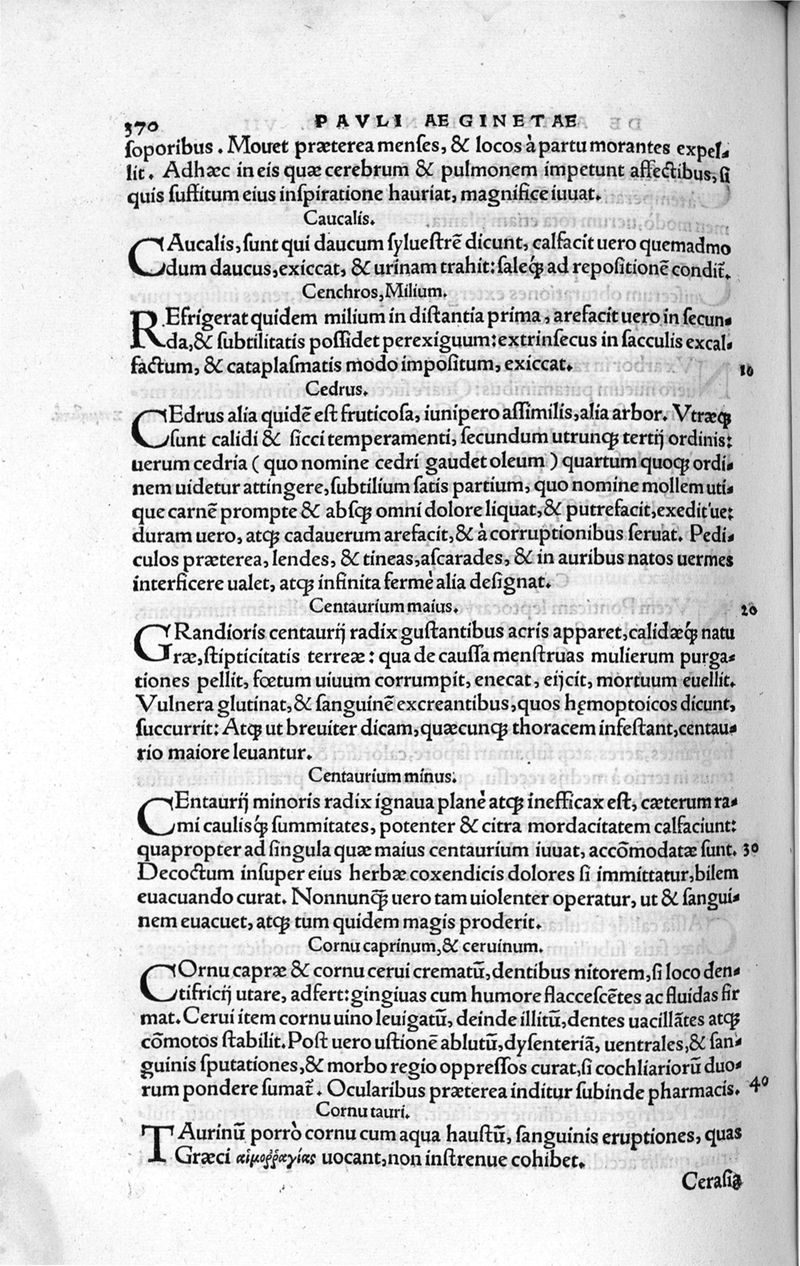 370 PAVLI AEGINETAE
ſoporibus. Mouet præterea menſes, & locos à partu morantes expel⸗
lit. Adhæc in eis quæ cerebrum & pulmonem impetunt affectibus, ſi
quis ſuffitum eius inſpiratione hauriat, magnifice iuuat.
Caucalis.
CAucalis, ſunt qui daucum ſylueſtrē dicunt, calfacit uero quemadmo
dum daucus, exiccat, & urinam trahit: ſaleq́ꝫ ad repoſitionē condit̃.
Cenchros, Milium.
REfrigerat quidem milium in diſtantia prima, arefacit uero in ſecun⸗
da, & ſubtilitatis poſſidet perexiguum: extrinſecus in ſacculis excal⸗
factum, & cataplaſmatis modo impoſitum, exiccat. 10
Cedrus.
CEdrus alia quidē eſt fruticoſa, iunipero aſſimilis, alia arbor. Vtræqꝫ
ſunt calidi & ſicci temperamenti, ſecundum utrunqꝫ tertij ordinis:
uerum cedria (quo nomine cedri gaudet oleum) quartum quoqꝫ ordi⸗
nem uidetur attingere, ſubtilium ſatis partium, quo nomine mollem uti⸗
que carnē prompte & abſqꝫ omni dolore liquat, & putrefacit, exedit ue:
duram uero, atqꝫ cadauerum arefacit, & à corruptionibus ſeruat. Pedi⸗
culos præterea, lendes, & tineas, aſcarades, & in auribus natos uermes
interficere ualet, atqꝫ infinita fermè alia deſignat.
Centaurium maius. 20
GRandioris centaurij radix guſtantibus acris apparet, calidæq́ꝫ natu
ræ, ſtipticitatis terreæ: qua de cauſſa menſtruas mulierum purga⸗
tiones pellit, fœtum uiuum corrumpit, enecat, eijcit, mortuum euellit.
Vulnera glutinat, & ſanguinē excreantibus, quos hęmoptoicos dicunt,
ſuccurrit: Atqꝫ ut breuiter dicam, quæcunqꝫ thoracem infeſtant, centau⸗
rio maiore leuantur.
Centaurium minus.
CEntaurij minoris radix ignaua planè atqꝫ inefficax eſt, cæterum ra⸗
mi caulisq́ꝫ ſummitates, potenter & citra mordacitatem calfaciunt:
quapropter ad ſingula quæ maius centaurium iuuat, accōmodatæ ſunt. 30
Decoctum inſuper eius herbæ coxendicis dolores ſi immittatur, bilem
euacuando curat. Nonnunq̃ uero tam uiolenter operatur, ut & ſangui⸗
nem euacuet, atqꝫ tum quidem magis proderit.
Cornu caprinum, & ceruinum.
COrnu capræ & cornu cerui crematū, dentibus nitorem, ſi loco den⸗
tifricij utare, adfert: gingiuas cum humore flacceſcētes ac fluidas fir
mat. Cerui item cornu uino leuigatū, deinde illitū, dentes uacillātes atqꝫ
cōmotos ſtabilit. Poſt uero uſtionē ablutū, dyſenteriā, uentrales, & ſan⸗
guinis ſputationes, & morbo regio oppreſſos curat, ſi cochliariorū duo⸗
rum pondere ſumat̃. Ocularibus præterea inditur ſubinde pharmacis. 40
Cornu tauri.
TAurinū porrò cornu cum aqua hauſtū, ſanguinis eruptiones, quas
Græci αἱμοῤῥαγίας uocant, non inſtrenue cohibet.
Ceraſia